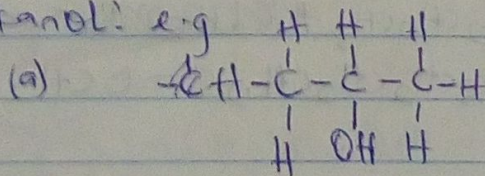 anol: e.g
H H H
(a) H-C-C-C-H
H OH H